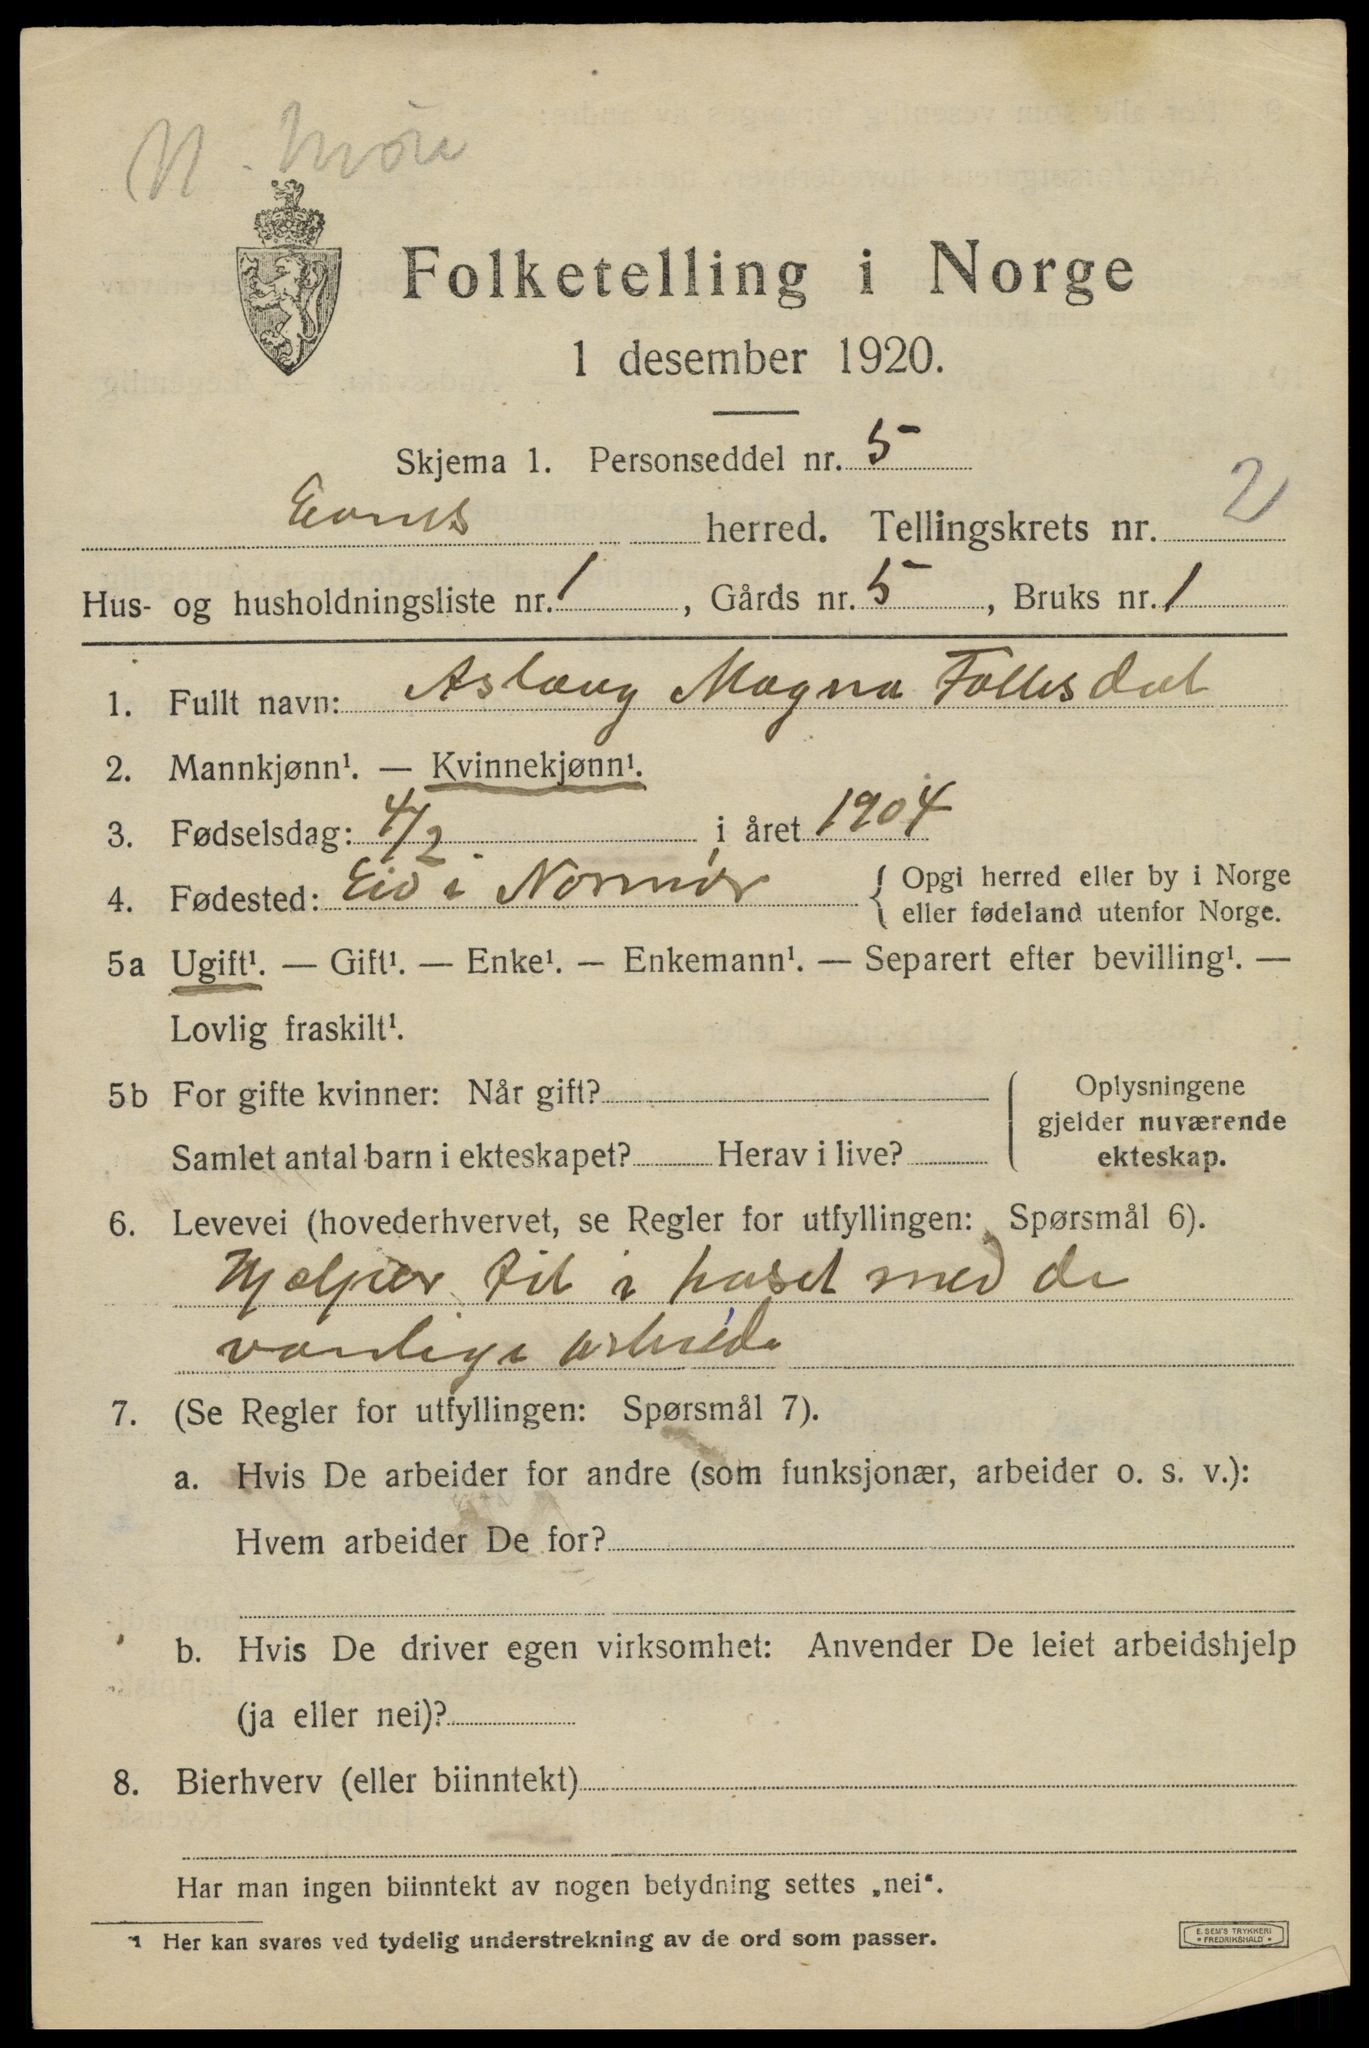 N. Møre
Folketelling i Norge
1 desember 1920.
Skjema 1. Personseddel nr. 5
herred. Tellingskrets nr. 2
Hus- og husholdningsliste nr. 1, Gårds nr. 5, Bruks nr. 1
1. Fullt navn: Aslaug Magna Follesdal
2. Mannkjønn¹. — Kvinnekjønn¹.
3. Fødselsdag: 4/2 i året 1904
4. Fødested: Eid i Normør { Opgi herred eller by i Norge
eller fødeland utenfor Norge.
5a Ugift¹. — Gift¹. — Enke¹. — Enkemann¹. — Separert efter bevilling¹. —
Lovlig fraskilt¹.
5b For gifte kvinner: Når gift? Oplysningene
gjelder nuværende
Samlet antal barn i ekteskapet? Herav i live? ekteskap.
6. Levevei (hovederhvervet, se Regler for utfyllingen: Spørsmål 6).
Hjælper til i huset med de
vanlige arbeide
7. (Se Regler for utfyllingen: Spørsmål 7).
a. Hvis De arbeider for andre (som funksjonær, arbeider o. s. v.):
Hvem arbeider De for?
b. Hvis De driver egen virksomhet: Anvender De leiet arbeidshjelp
(ja eller nei)?
8. Bierhverv (eller biinntekt)
Har man ingen biinntekt av nogen betydning settes „nei“.
¹ Her kan svares ved tydelig understrekning av de ord som passer.
E. SEM'S TRYKKERI
FREDRIKSHALD